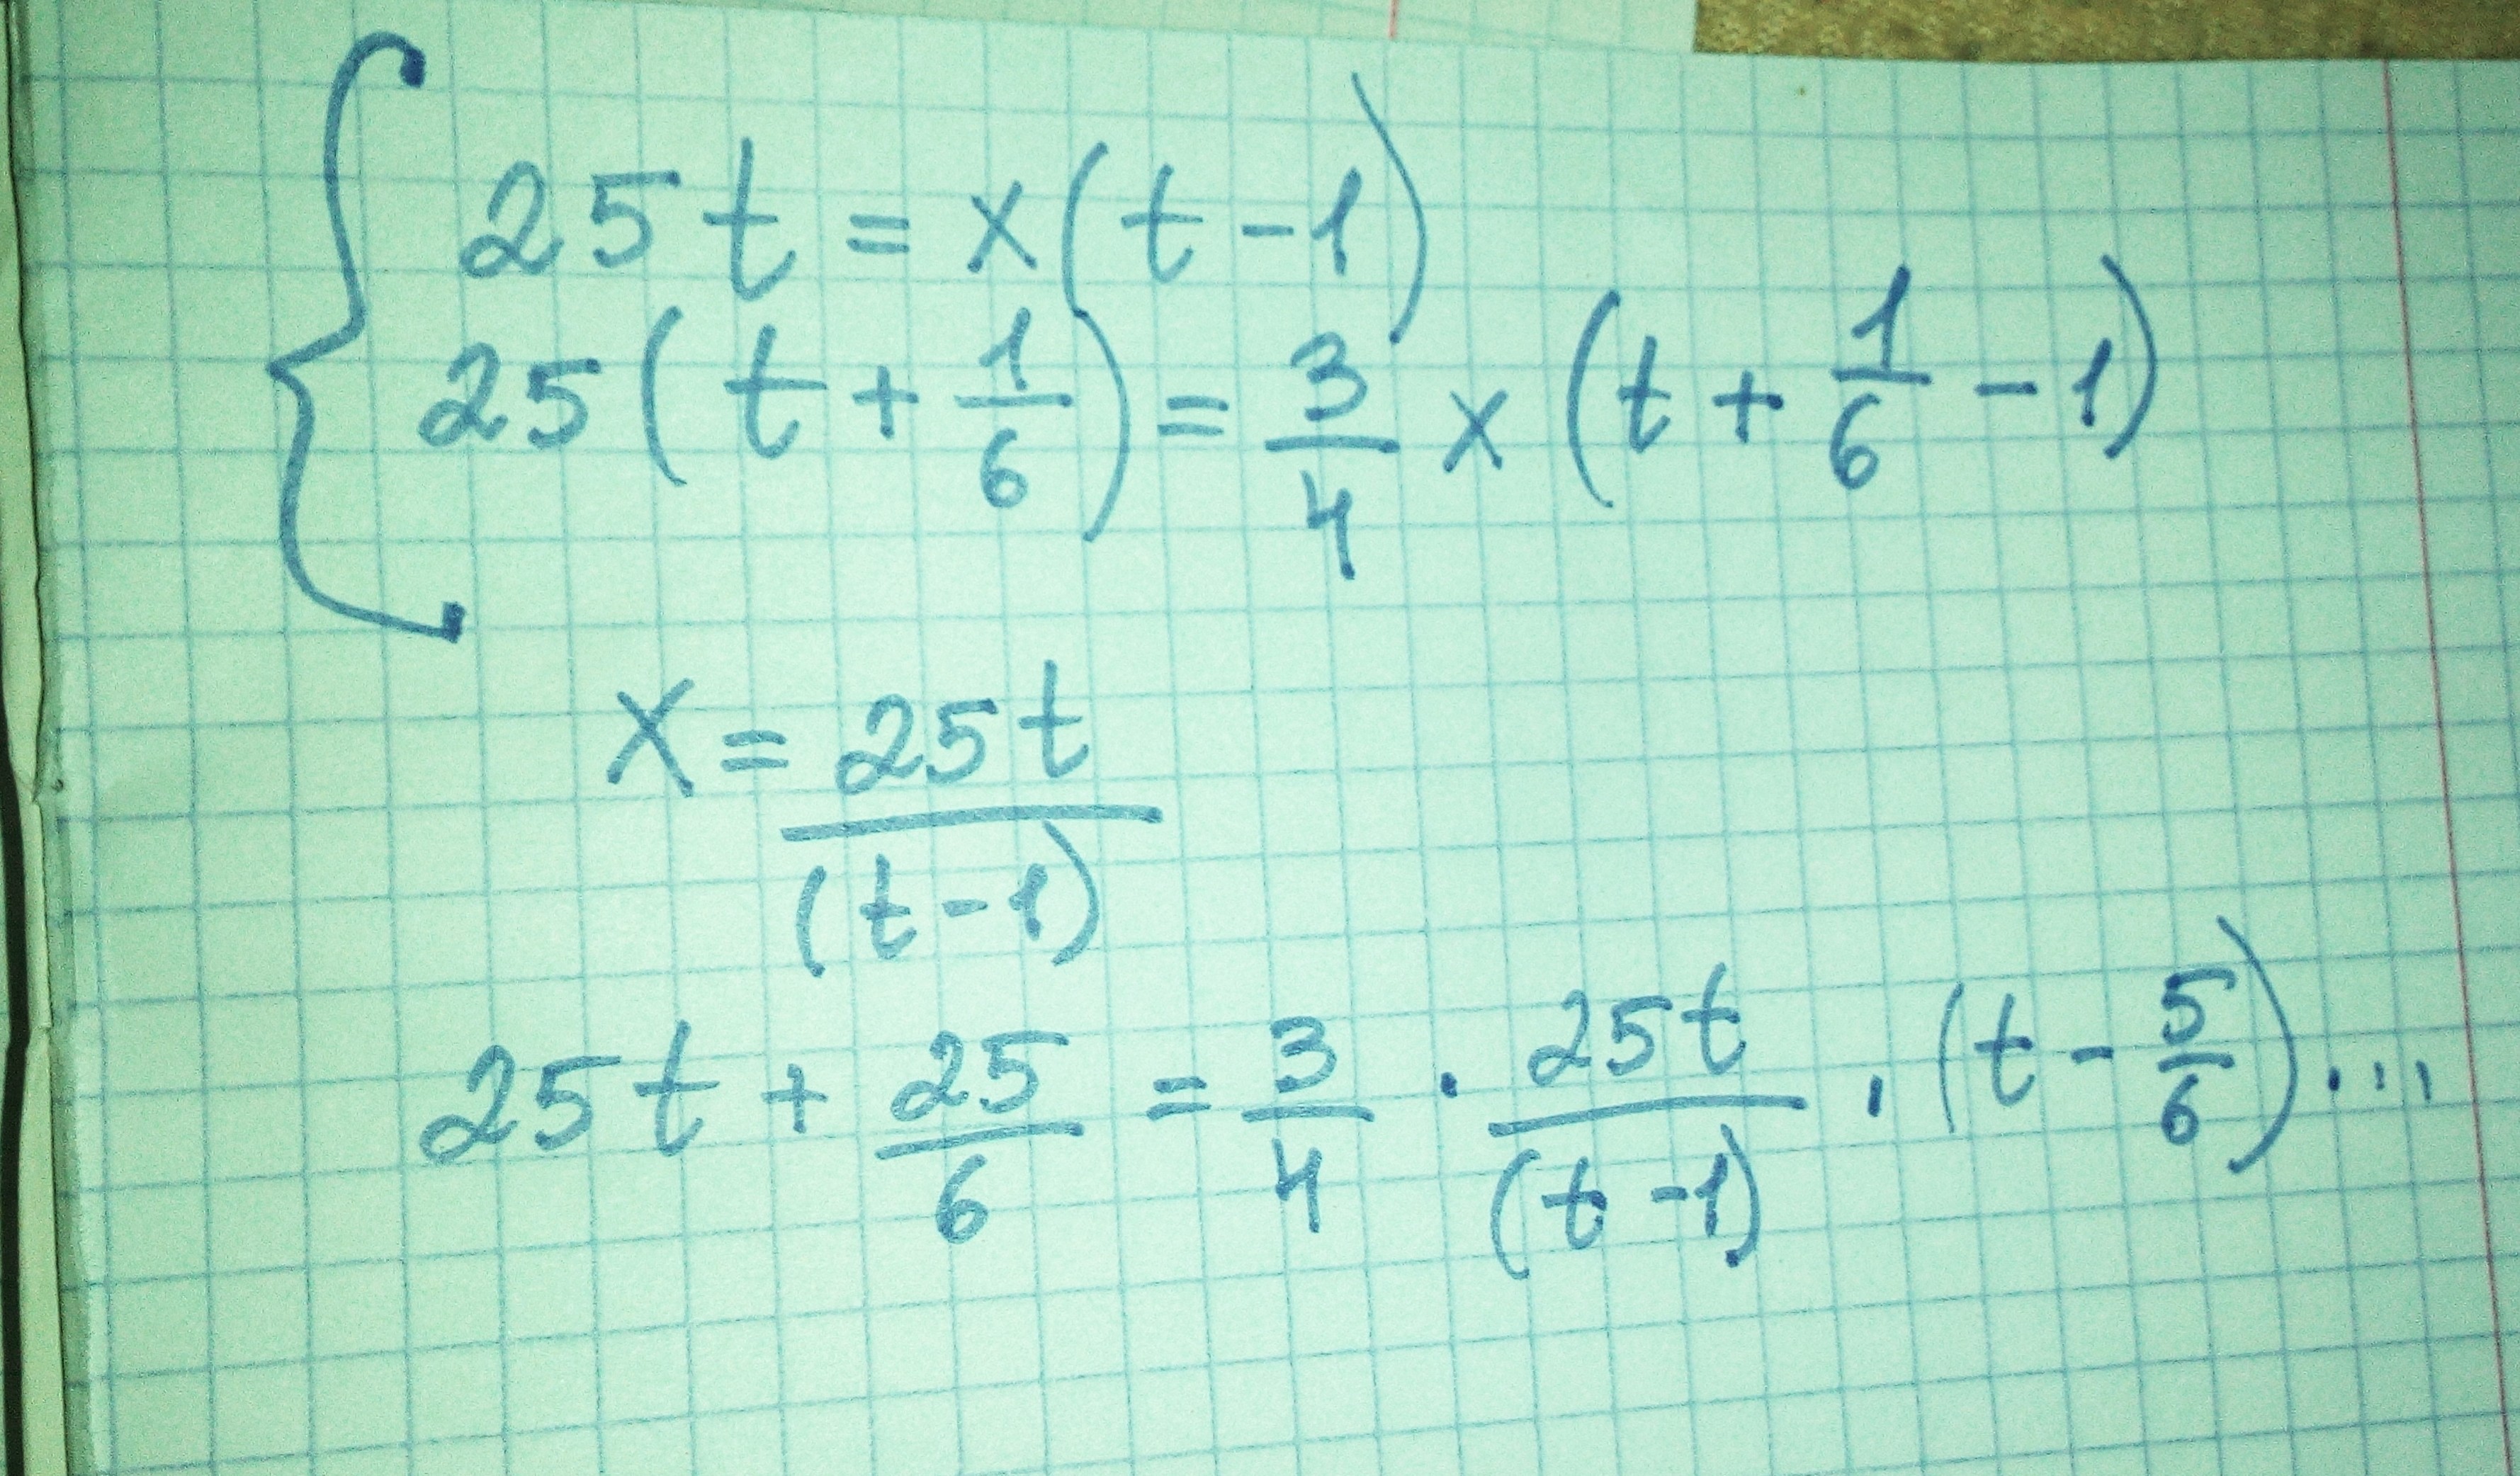 25t = x(t - 1)
25(t + 1/6) = 3/4 x (t + 1/6 - 1)
x = 25t/(t - 1)
25t + 25/6 = 3/4 · 25t/(t - 1) · (t - 5/6)...